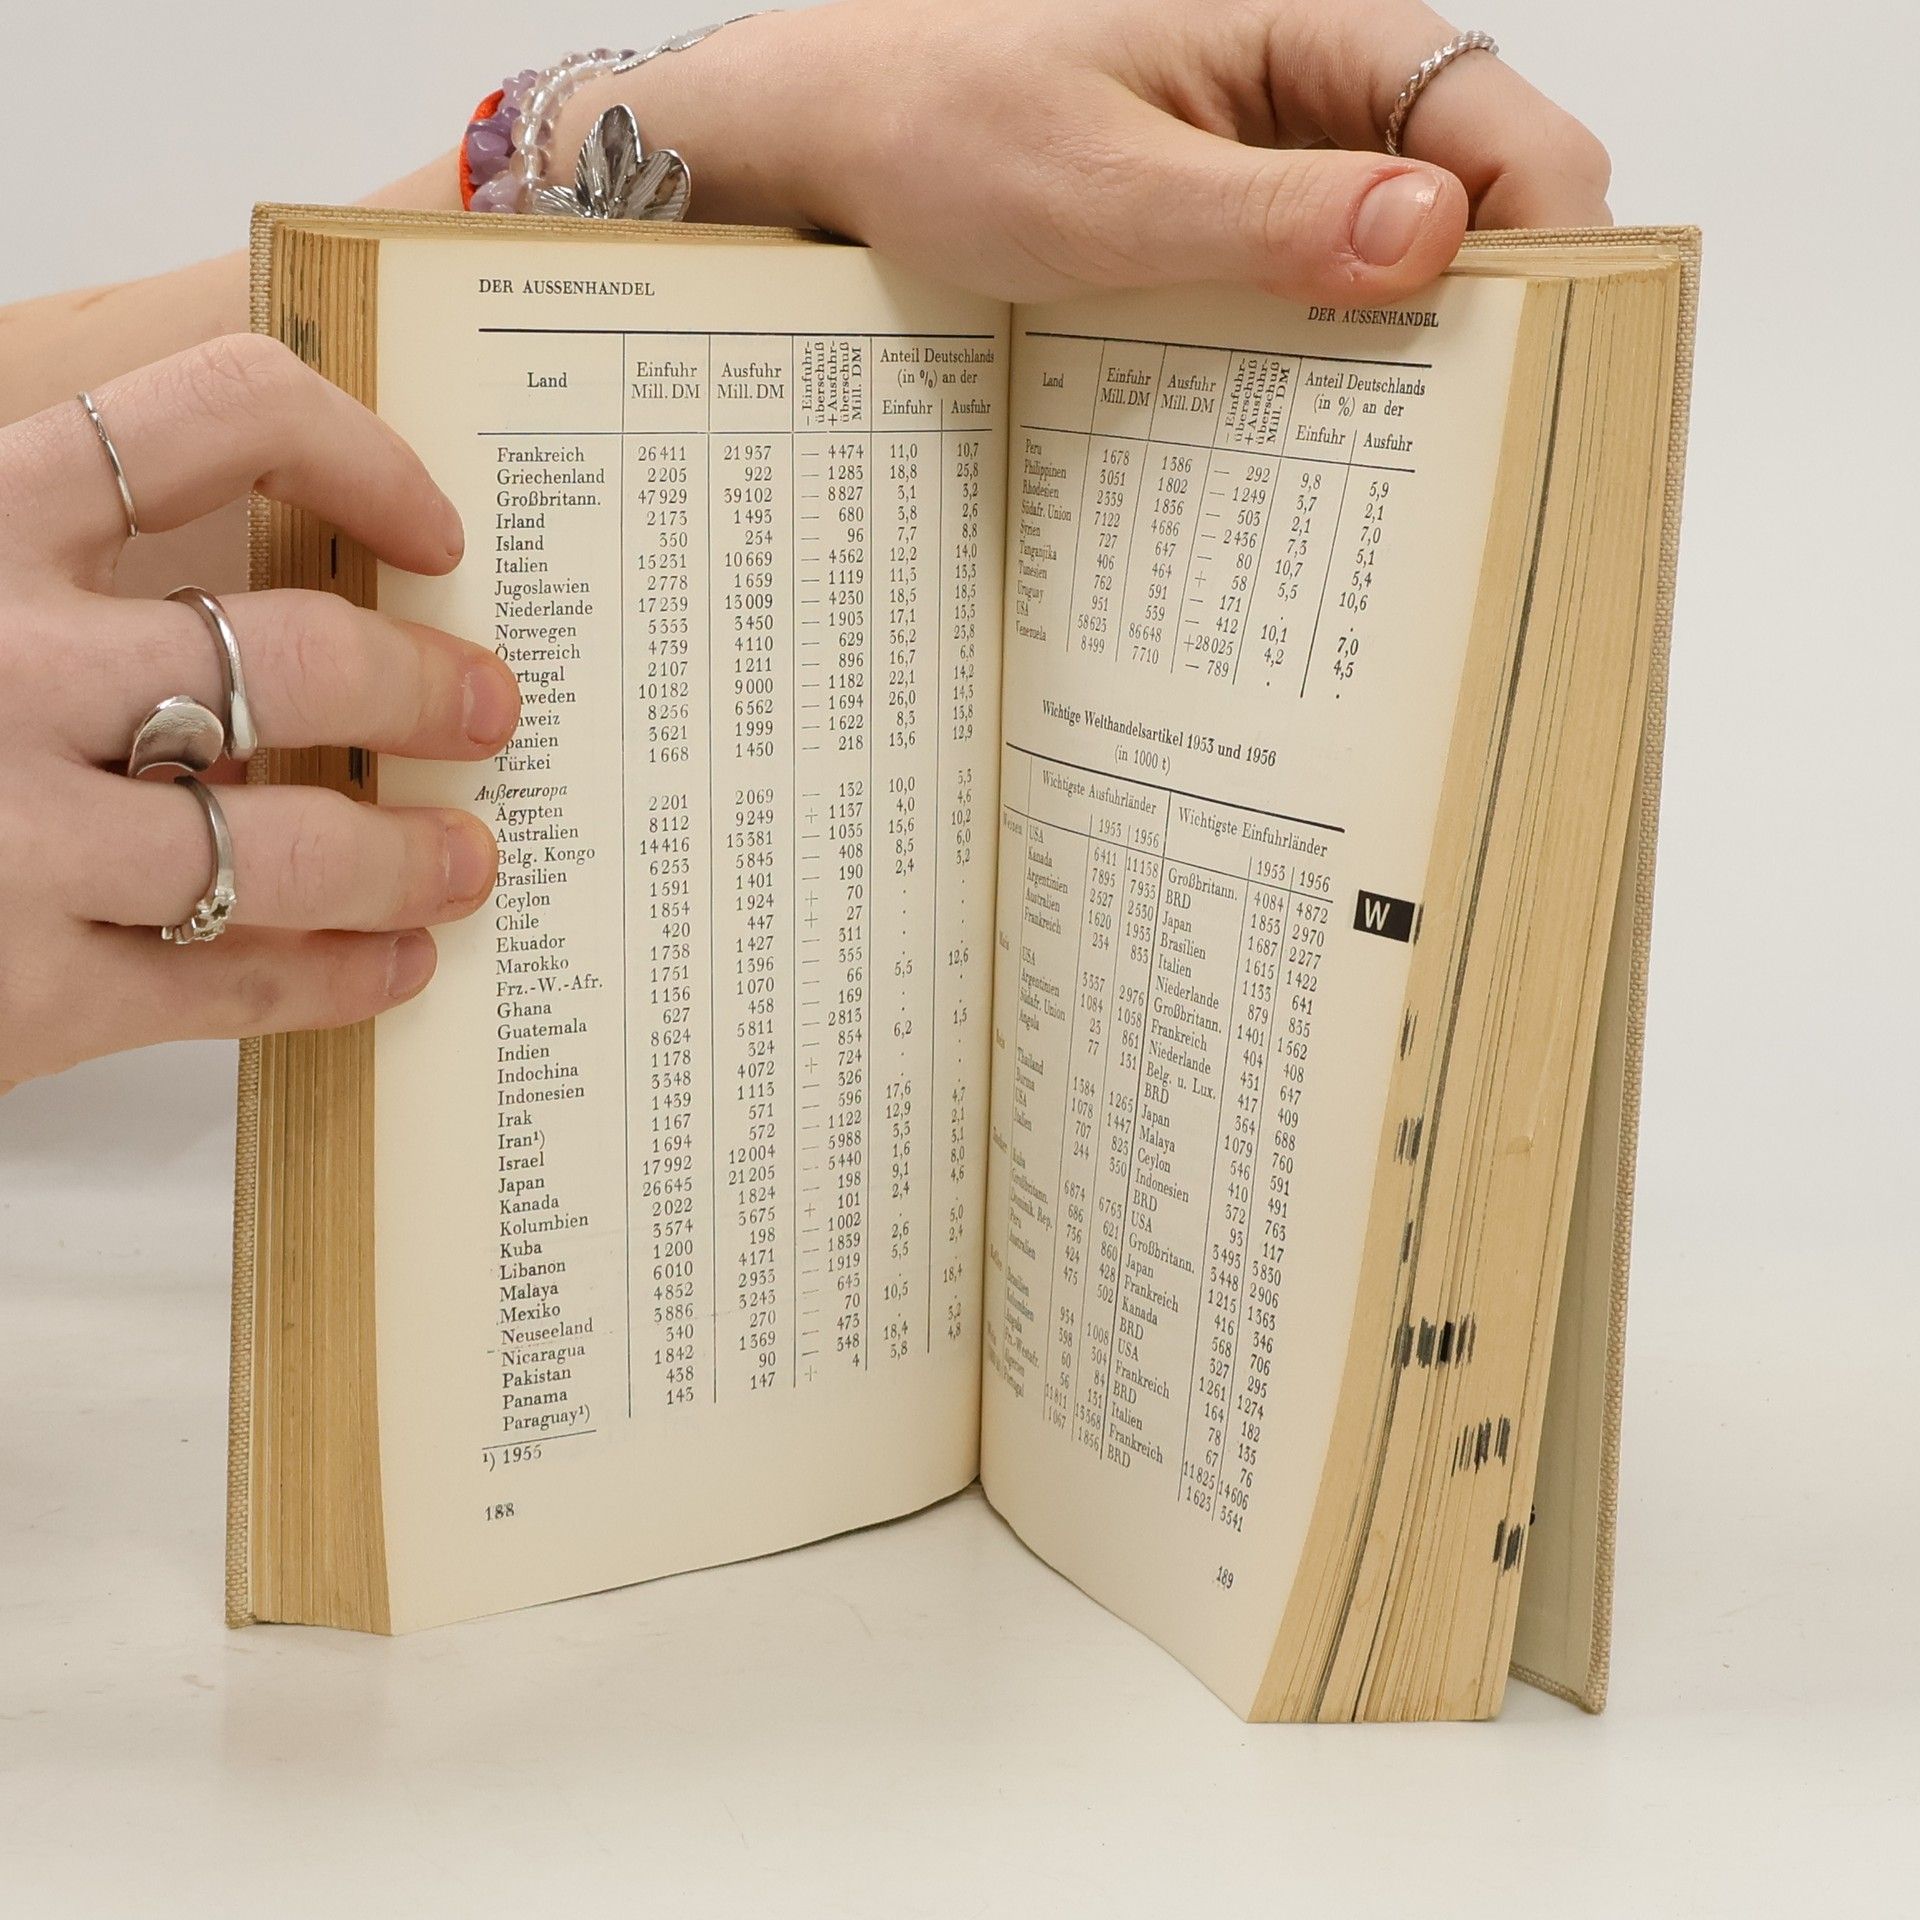 DER AUSSENHANDEL
Land Einfuhr Mill. DM Ausfuhr Mill. DM — Einfuhr-überschuß + Ausfuhr-überschuß Mill. DM Anteil Deutschlands (in %) an der Einfuhr Ausfuhr
Frankreich 26411 21937 — 4474 11,0 10,7
Griechenland 2205 922 — 1283 18,8 25,8
Großbritann. 47929 39102 — 8827 3,1 3,2
Irland 2173 1493 — 680 3,8 2,6
Island 350 254 — 96 7,7 8,8
Italien 15231 10669 — 4562 12,2 14,0
Jugoslawien 2778 1659 — 1119 11,3 13,3
Niederlande 17239 13009 — 4230 18,5 18,5
Norwegen 5353 3450 — 1903 17,1 13,5
Österreich 4739 4110 — 629 36,2 23,8
rtugal 2107 1211 — 896 16,7 6,8
weden 10182 9000 — 1182 22,1 14,2
weiz 8256 6562 — 1694 26,0 14,3
panien 3621 1999 — 1622 8,3 13,8
Türkei 1668 1450 — 218 13,6 12,9
Außereuropa
Ägypten 2201 2069 — 132 10,0 5,5
Australien 8112 9249 + 1137 4,0 4,6
Belg. Kongo 14416 13381 — 1035 15,6 10,2
Brasilien 6253 5845 — 408 8,5 6,0
Ceylon 1591 1401 — 190 2,4 3,2
Chile 1854 1924 + 70 . .
Ekuador 420 447 + 27 . .
Marokko 1738 1427 — 311 . .
Frz.-W.-Afr. 1751 1396 — 355 . .
Ghana 1136 1070 — 66 5,5 12,6
Guatemala 627 458 — 169 . .
Indien 8624 5811 — 2813 . .
Indochina 1178 324 — 854 6,2 1,5
Indonesien 3348 4072 + 724 . .
Irak 1439 1113 — 326 . .
Iran¹) 1167 571 — 596 17,6 .
Israel 1694 572 — 1122 12,9 4,7
Japan 17992 12004 — 5988 3,3 2,1
Kanada 26645 21205 — 5440 1,6 5,1
Kolumbien 2022 1824 — 198 9,1 8,0
Kuba 3574 3675 + 101 2,4 4,6
Libanon 1200 198 — 1002 . .
Malaya 6010 4171 — 1839 2,6 5,0
Mexiko 4852 2933 — 1919 5,5 2,4
Neuseeland 3886 3243 — 643 . .
Nicaragua 340 270 — 70 10,5 18,4
Pakistan 1842 1369 — 473 . .
Panama 438 90 — 348 18,4 3,2
Paraguay¹) 143 147 + 4 5,8 4,8
¹) 1955
188
DER AUSSENHANDEL
Land Einfuhr Mill. DM Ausfuhr Mill. DM — Einfuhr-überschuß + Ausfuhr-überschuß Mill. DM Anteil Deutschlands (in %) an der Einfuhr Ausfuhr
Peru 1678 1386 — 292 9,8 5,9
Philippinen 3051 1802 — 1249 3,7 2,1
Rhodesien 2339 1836 — 503 2,1 7,0
Südafr. Union 7122 4686 — 2436 7,3 5,1
Syrien 727 647 — 80 10,7 5,4
Tanganjika 406 464 + 58 5,5 10,6
Tunesien 762 591 — 171 . .
Uruguay 951 539 — 412 10,1 7,0
USA 58623 86648 +28025 4,2 4,5
Venezuela 8499 7710 — 789 . .
Wichtige Welthandelsartikel 1953 und 1956
(in 1000 t)
Wichtigste Ausfuhrländer Wichtigste Einfuhrländer
1953 1956 1953 1956
Weizen USA 6411 11158 Großbritann. 4084 4872
Kanada 7895 7933 BRD 1853 2970
Argentinien 2527 2530 Japan 1687 2277
Australien 1620 1933 Brasilien 1615 1422
Frankreich 234 833 Italien 1133 641
Mais USA 3337 2976 Niederlande 879 835
Argentinien 1084 1058 Großbritann. 1401 1562
Südafr. Union 23 861 Frankreich 404 408
Angola 77 131 Niederlande 431 647
Belg. u. Lux. 417 409
BRD 364 688
Reis Thailand 1384 1265 Japan 1079 760
Burma 1078 1447 Malaya 546 591
USA 707 823 Ceylon 410 491
Italien 244 350 Indonesien 372 763
BRD 93 117
Zucker Kuba 6874 6763 USA 3493 3830
Großbritann. 686 621 Großbritann. 3448 2906
Dominik. Rep. 736 860 Japan 1215 1363
Peru 424 428 Frankreich 416 346
Australien 475 502 Kanada 568 706
BRD 327 295
Kaffee Brasilien 934 1008 USA 1261 1274
Kolumbien 398 304 Frankreich 164 182
Angola 60 84 BRD 78 135
Fr.-Westafr. 56 131 Italien 67 76
Algerien 11811 13368 Frankreich 11825 14606
Portugal 1067 1856 BRD 1623 3541
W
189